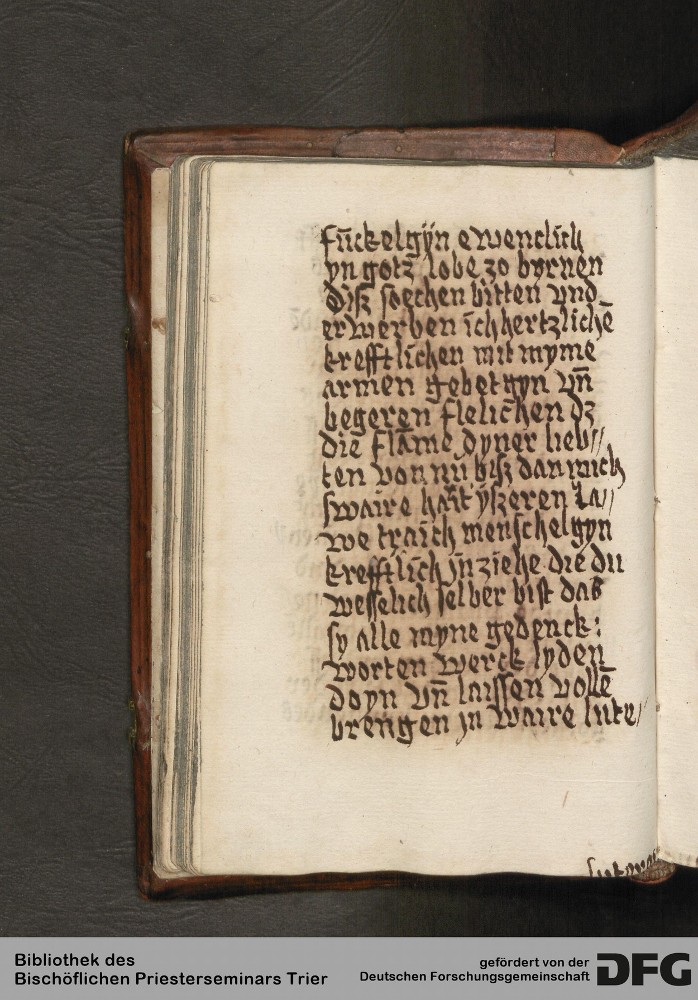 fūckelgÿn ewenclich
yn gotz lobe zo byrnen
Diſz ſoechen bitten vnd
erwerben ich hertzlichē
krefftlichen mit myme
armen gebetgyn vn̄
begeren flelichen dz
die flāme dyner lieb//
ten von nū biſz dan mich
ſwaire hart yſzeren la//
we traich menſchelgyn
krefftlich jn ziehe die du
weſſelich ſelber biſt das
ſy alle myne gedenck:
worten werck lyden
doyn vn̄ laiſſen volle
brengen jn waire lute/
Bibliothek des
Bischöflichen Priesterseminars Trier
gefördert von der
Deutschen Forschungsgemeinschaft
DFG